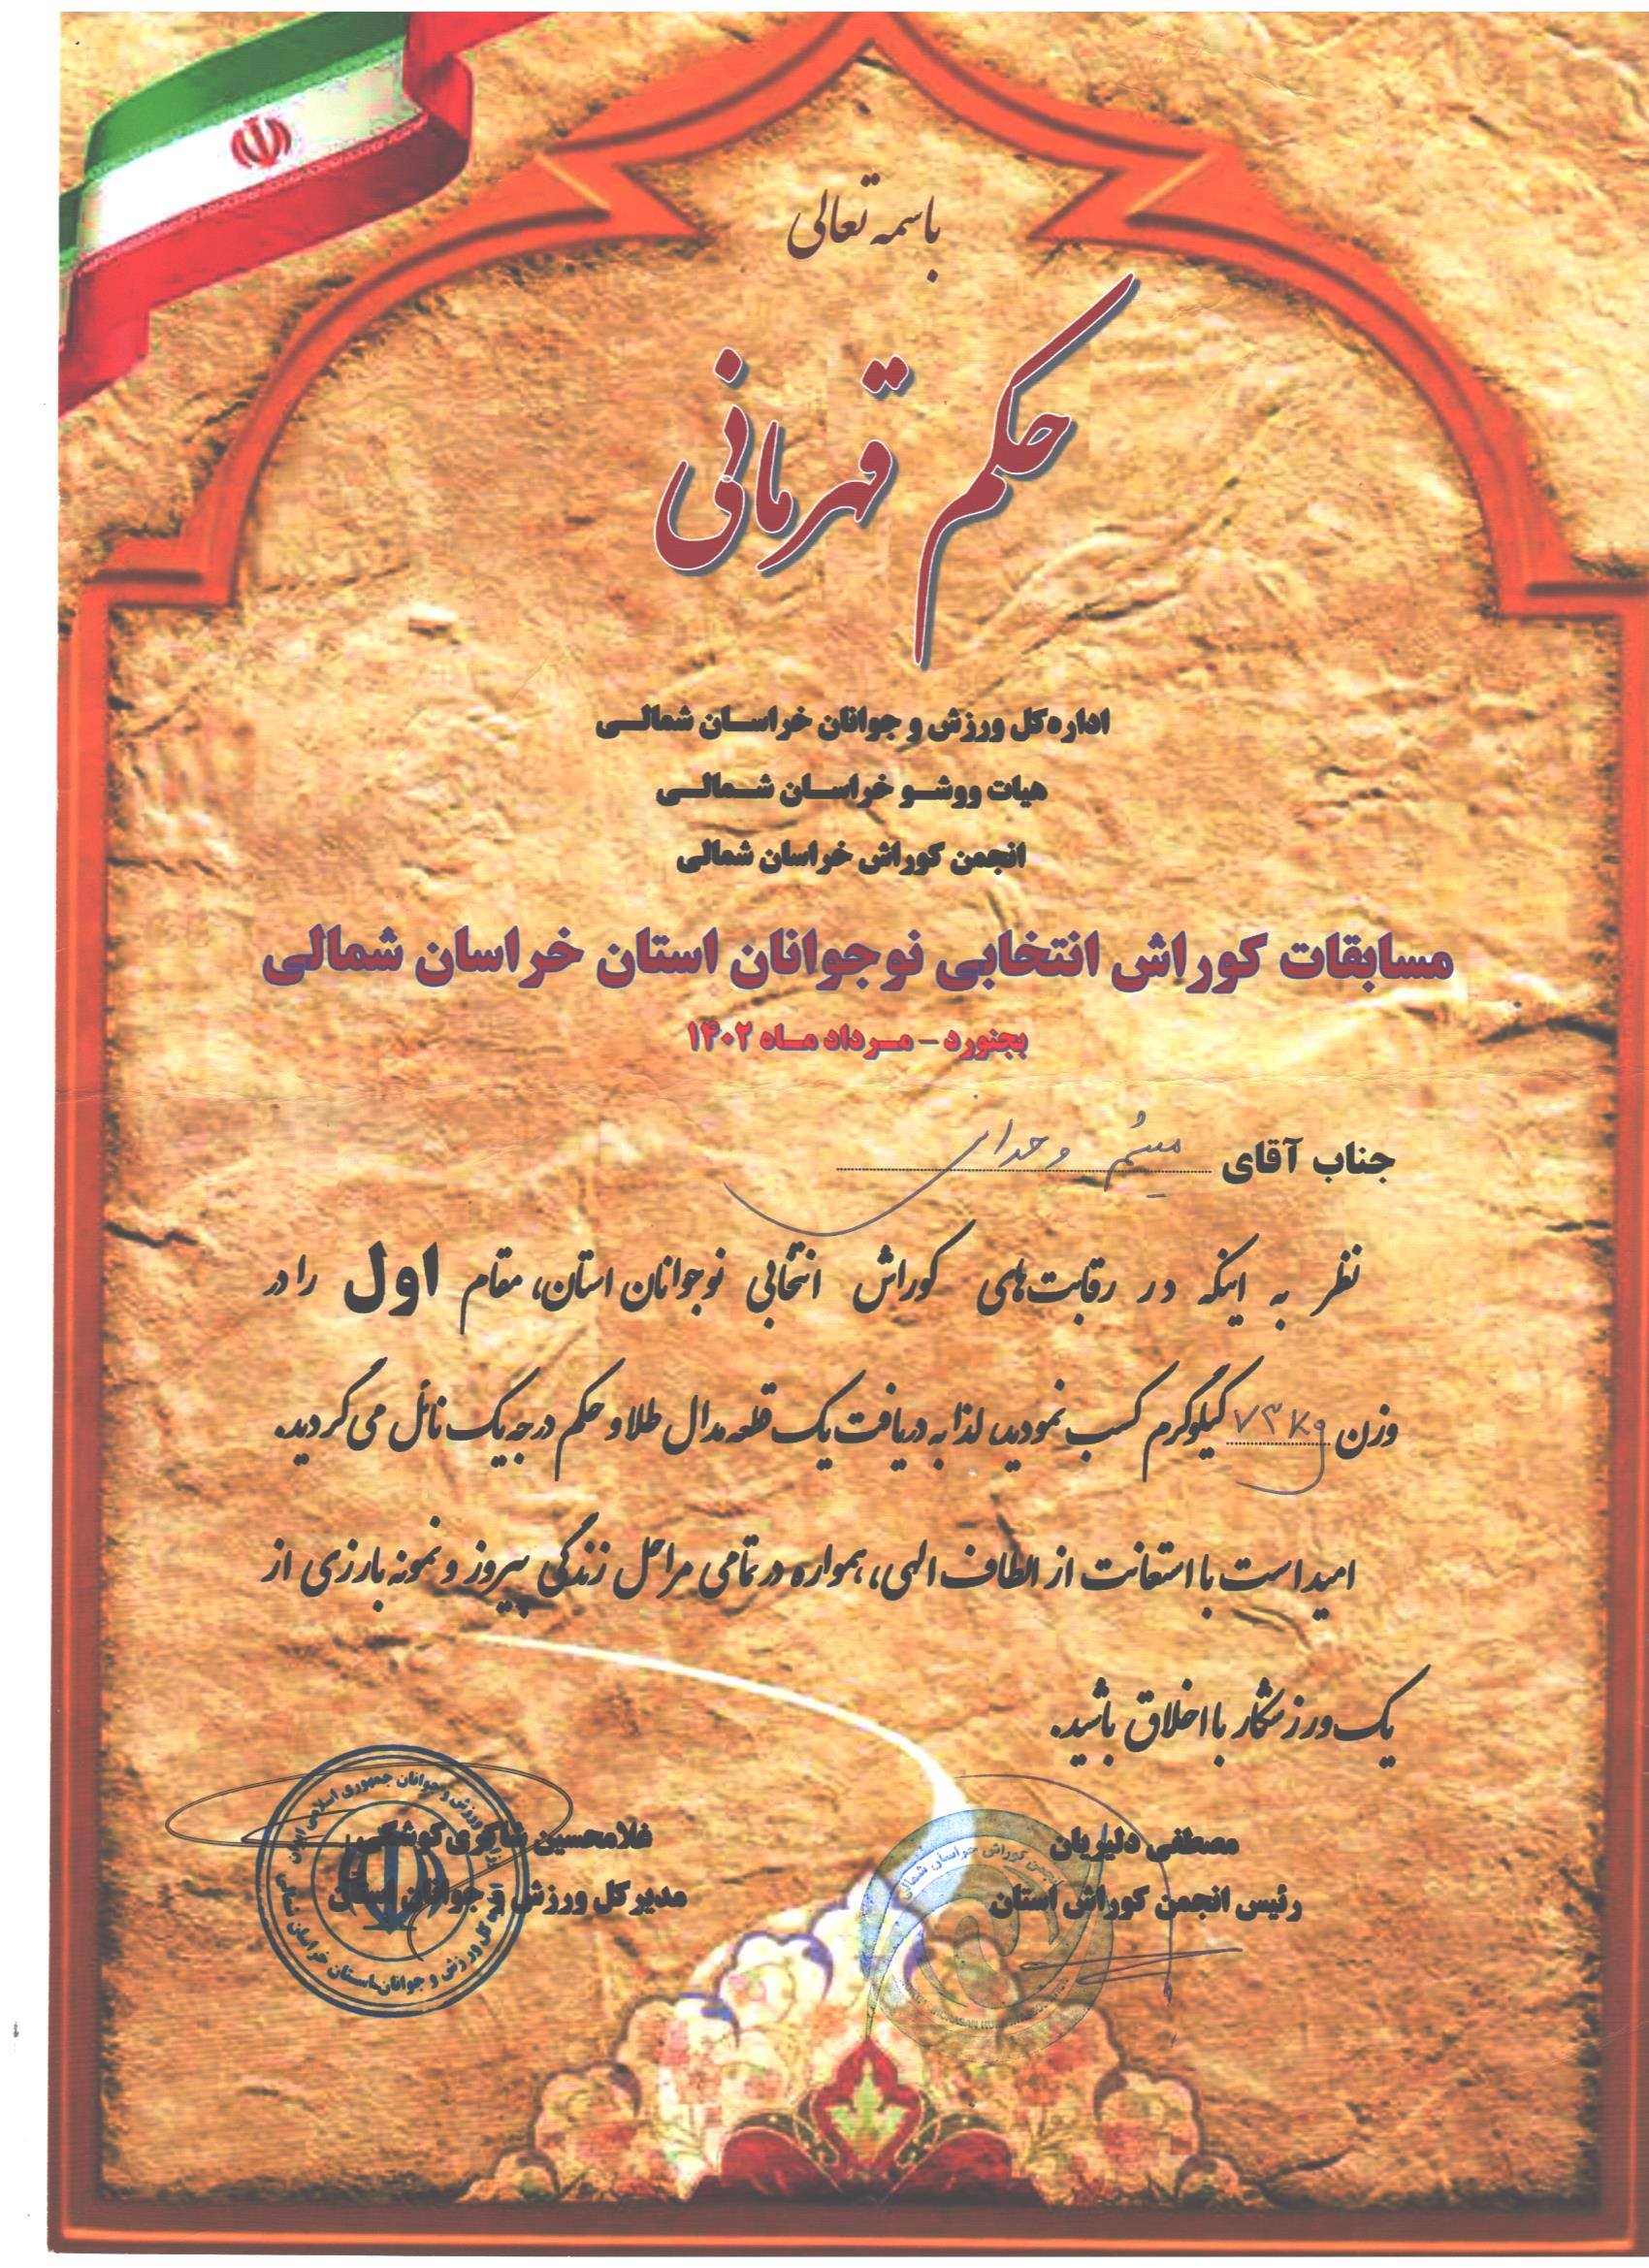 باسمه تعالی
حکم قهرمانی
اداره کل ورزش و جوانان خراسان شمالی
هیات ووشو خراسان شمالی
انجمن کوراش خراسان شمالی
مسابقات کوراش انتخابی نوجوانان استان خراسان شمالی
بجنورد - مرداد ماه ۱۴۰۲
جناب آقای میثم وحدانی
نظر به اینکه در رقابت‌های کوراش انتخابی نوجوانان استان، مقام اول را در
وزن ۷۳kg کیلوگرم کسب نمودید، لذا به دریافت یک قطعه مدال طلا و حکم درجه یک نائل می گردید.
امید است با استعانت از الطاف الهی، همواره در تمامی مراحل زندگی پیروز و نمونه بارزی از
یک ورزشکار با اخلاق باشید.
مصطفی دلیریان
رئیس انجمن کوراش استان
غلامحسین شاکری کوشکی
مدیر کل ورزش و جوانان استان
انجمن کوراش خراسان شمالی
ورزش و جوانان جمهوری اسلامی ایران
اداره کل ورزش و جوانان استان خراسان شمالی